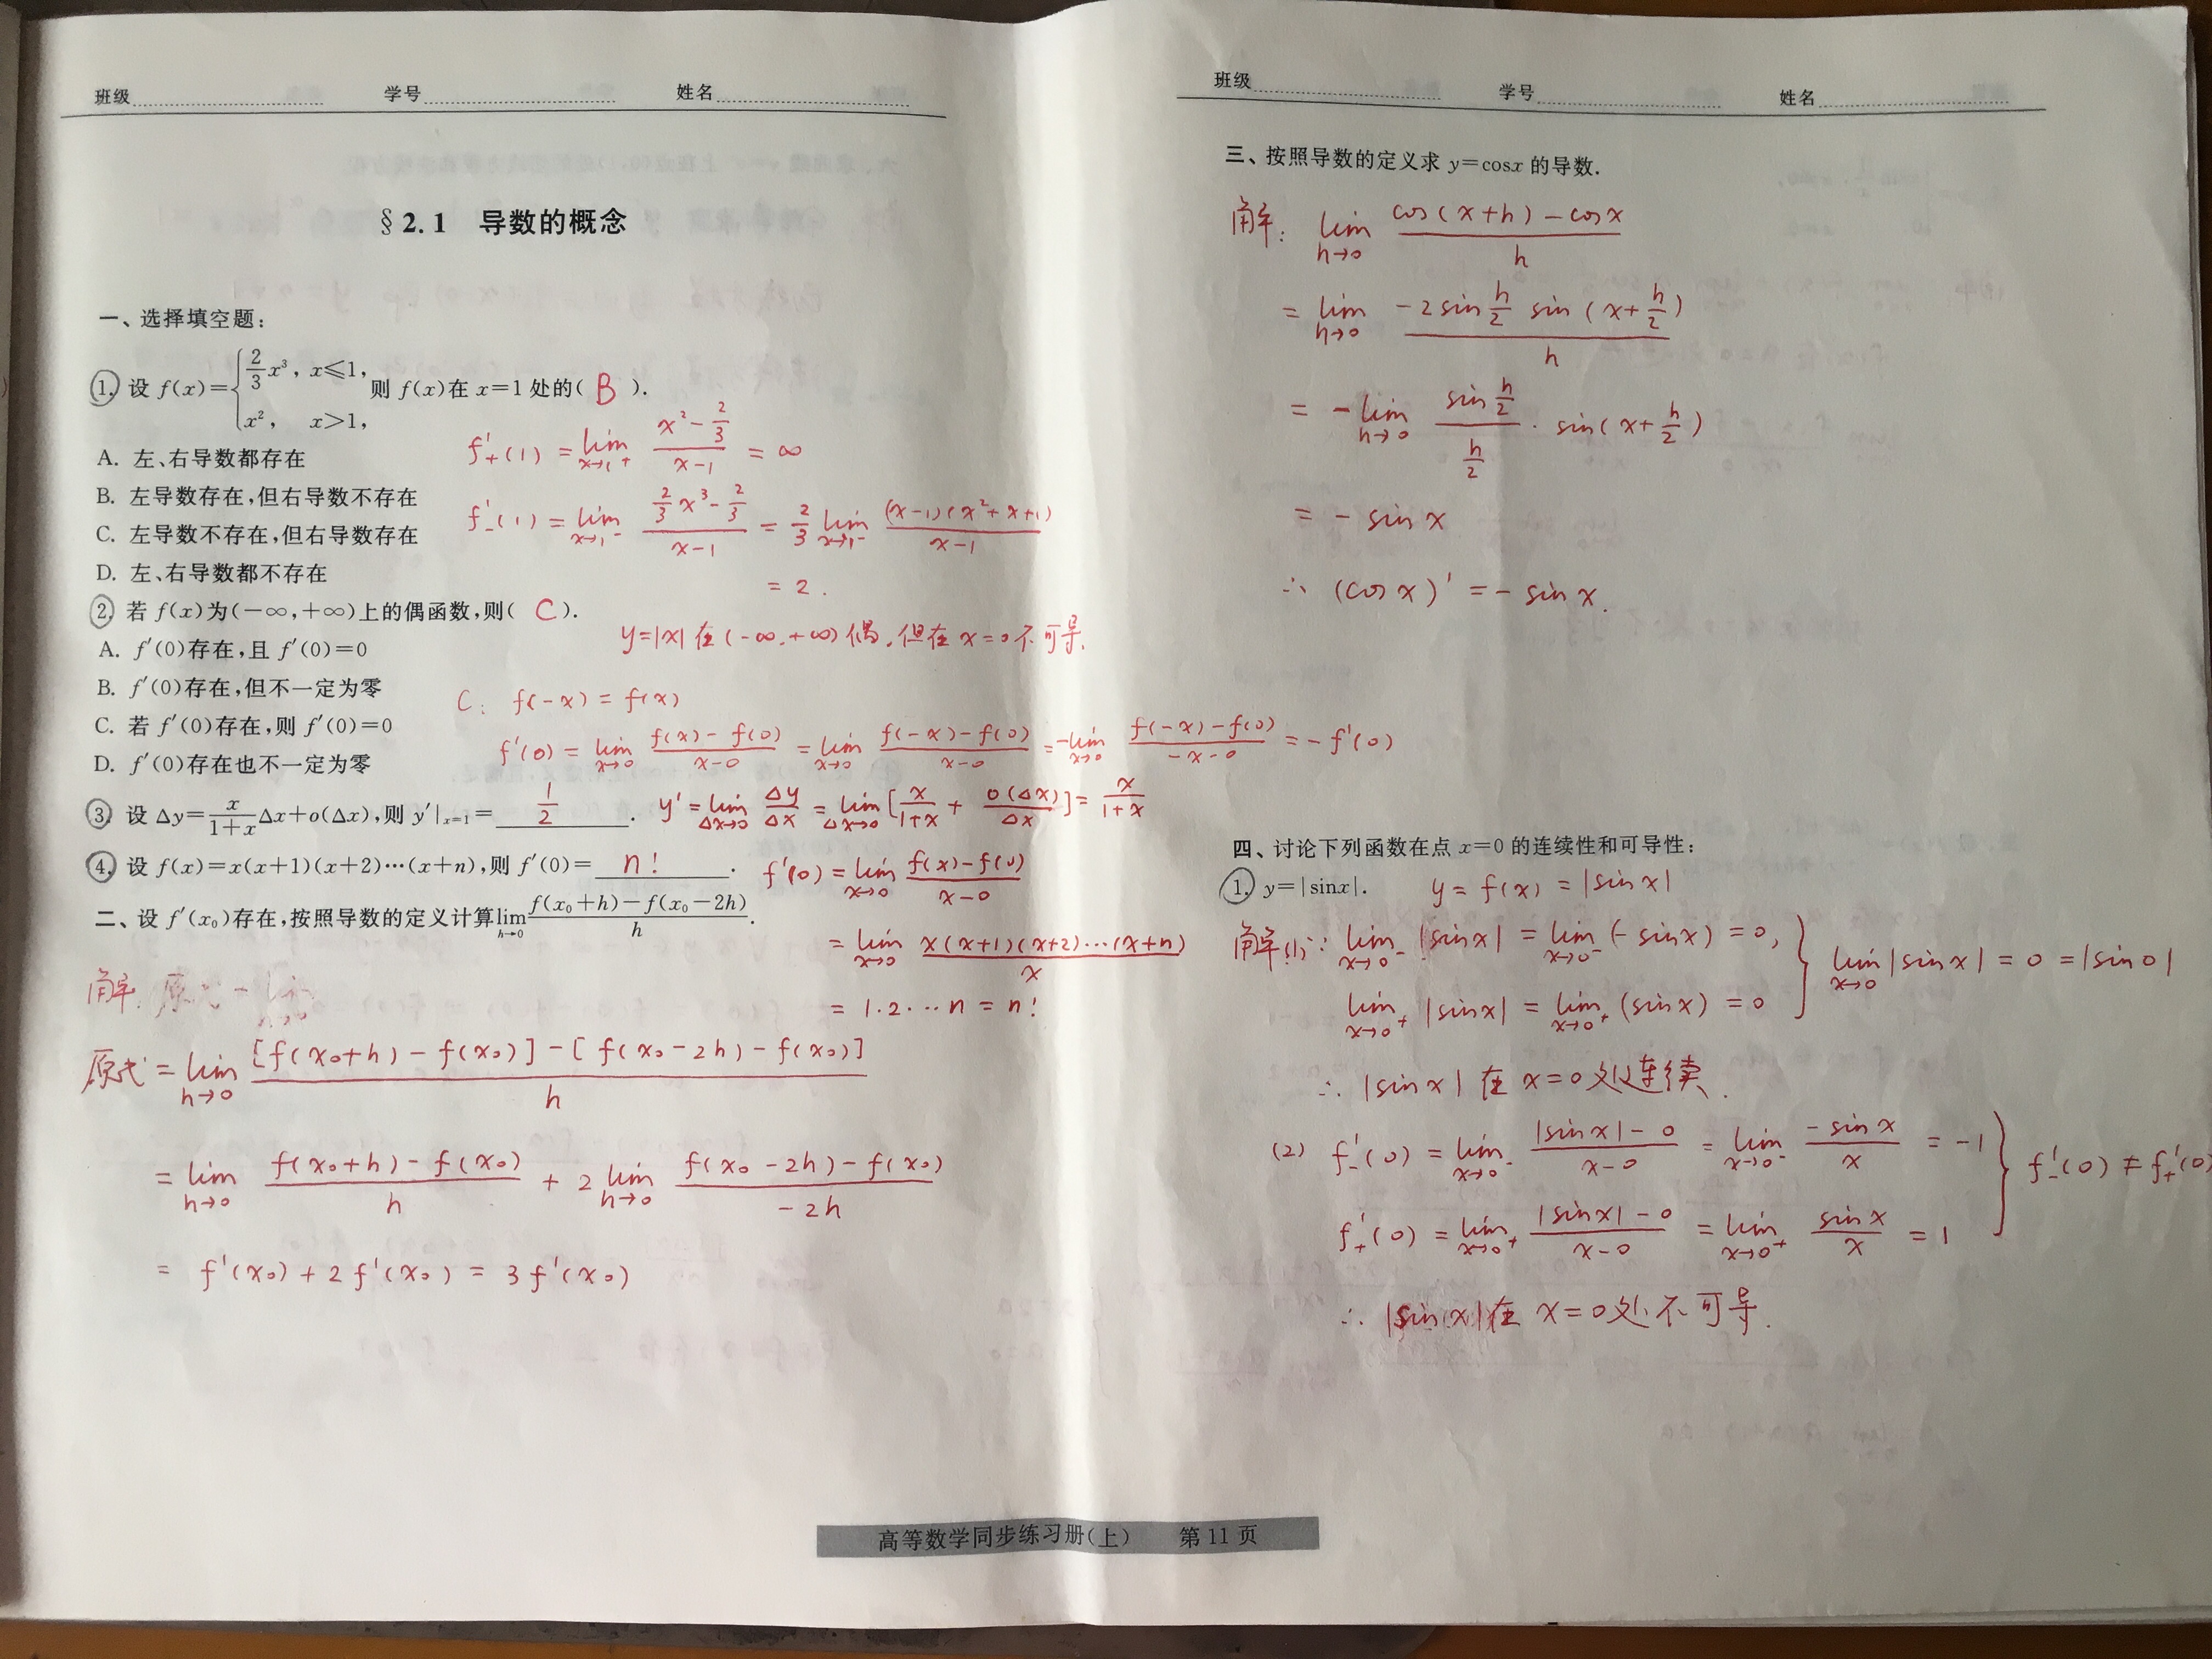 班级 学号 姓名
§2.1 导数的概念
一、选择填空题:
1. 设 f(x)={2/3 x³, x≤1, x², x>1, 则 f(x)在 x=1 处的( B ).
f'₊(1) = lim_{x→1⁺} (x²-2/3)/(x-1) = ∞
A. 左、右导数都存在
B. 左导数存在,但右导数不存在
f'₋(1) = lim_{x→1⁻} (2/3 x³-2/3)/(x-1) = 2/3 lim_{x→1⁻} (x-1)(x²+x+1)/(x-1)
C. 左导数不存在,但右导数存在
D. 左、右导数都不存在
= 2.
2. 若 f(x)为(-∞,+∞)上的偶函数,则( C ).
y=|x| 在(-∞,+∞)偶,但在 x=0 不可导.
A. f'(0)存在,且 f'(0)=0
B. f'(0)存在,但不一定为零
C: f(-x) = f(x)
C. 若 f'(0)存在,则 f'(0)=0
f'(0) = lim_{x→0} (f(x)-f(0))/(x-0) = lim_{x→0} (f(-x)-f(0))/(x-0) = -lim_{x→0} (f(-x)-f(0))/(-x-0) = -f'(0)
D. f'(0)存在也不一定为零
3. 设 Δy=x/(1+x) Δx+o(Δx),则 y'|ₓ₌₁= 1/2 .
y' = lim_{Δx→0} Δy/Δx = lim_{Δx→0} [x/(1+x) + o(Δx)/Δx] = x/(1+x)
4. 设 f(x)=x(x+1)(x+2)⋯(x+n),则 f'(0)= n! .
f'(0) = lim_{x→0} (f(x)-f(0))/(x-0)
= lim_{x→0} x(x+1)(x+2)⋯(x+n)/x
= 1·2·⋯n = n!
二、设 f'(x₀)存在,按照导数的定义计算 lim_{h→0} (f(x₀+h)-f(x₀-2h))/h.
解: 原式 = lim
原式 = lim_{h→0} ([f(x₀+h)-f(x₀)]-[f(x₀-2h)-f(x₀)])/h
= lim_{h→0} (f(x₀+h)-f(x₀))/h + 2 lim_{h→0} (f(x₀-2h)-f(x₀))/(-2h)
= f'(x₀)+2f'(x₀) = 3f'(x₀)
班级 学号 姓名
三、按照导数的定义求 y=cosx 的导数.
解: lim_{h→0} (cos(x+h)-cosx)/h
= lim_{h→0} (-2sin h/2 sin(x+h/2))/h
= -lim_{h→0} (sin h/2)/(h/2) · sin(x+h/2)
= -sinx
∴ (cosx)' = -sinx.
四、讨论下列函数在点 x=0 的连续性和可导性:
1. y=|sinx|. y = f(x) = |sinx|
解(1): lim_{x→0⁻} |sinx| = lim_{x→0⁻} (-sinx) = 0,
lim_{x→0⁺} |sinx| = lim_{x→0⁺} (sinx) = 0
} lim_{x→0} |sinx| = 0 = |sin0|
∴ |sinx| 在 x=0 处连续.
(2) f'₋(0) = lim_{x→0⁻} (|sinx|-0)/(x-0) = lim_{x→0⁻} (-sinx)/x = -1
f'₊(0) = lim_{x→0⁺} (|sinx|-0)/(x-0) = lim_{x→0⁺} sinx/x = 1
} f'₋(0) ≠ f'₊(0)
∴ |sinx|在 x=0处不可导.
高等数学同步练习册(上) 第 11 页